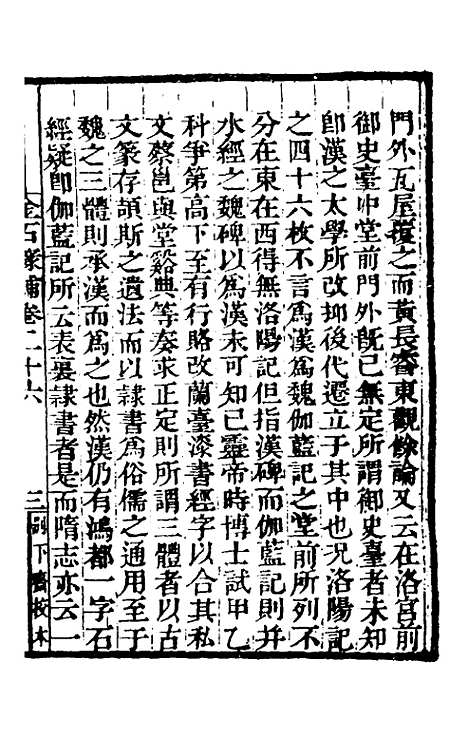 門外瓦屋覆之而黃長睿東觀餘論又云在洛宮前
御史臺中堂前門外旣已無定所謂御史臺者未知
卽漢之太學所改抑後代遷立于其中也况洛陽記
之四十六枚不言爲漢爲魏伽藍記之堂前所列不
分在東在西得無洛陽記但指漢碑而伽藍記則幷
水經之魏碑以爲漢未可知已靈帝時博士試甲乙
科爭第高下至有行賂改蘭臺漆書經字以合其私
文蔡邕與堂谿典等奏求正定則所謂三體者以古
文篆存頡斯之遺法而以隷書爲俗儒之通用至于
魏之三體則承漢而爲之也然漢仍有鴻都一字石
經疑卽伽藍記所云表裏隷書者是而隋志亦云一
金石彔補卷二十六
三
下齋校本